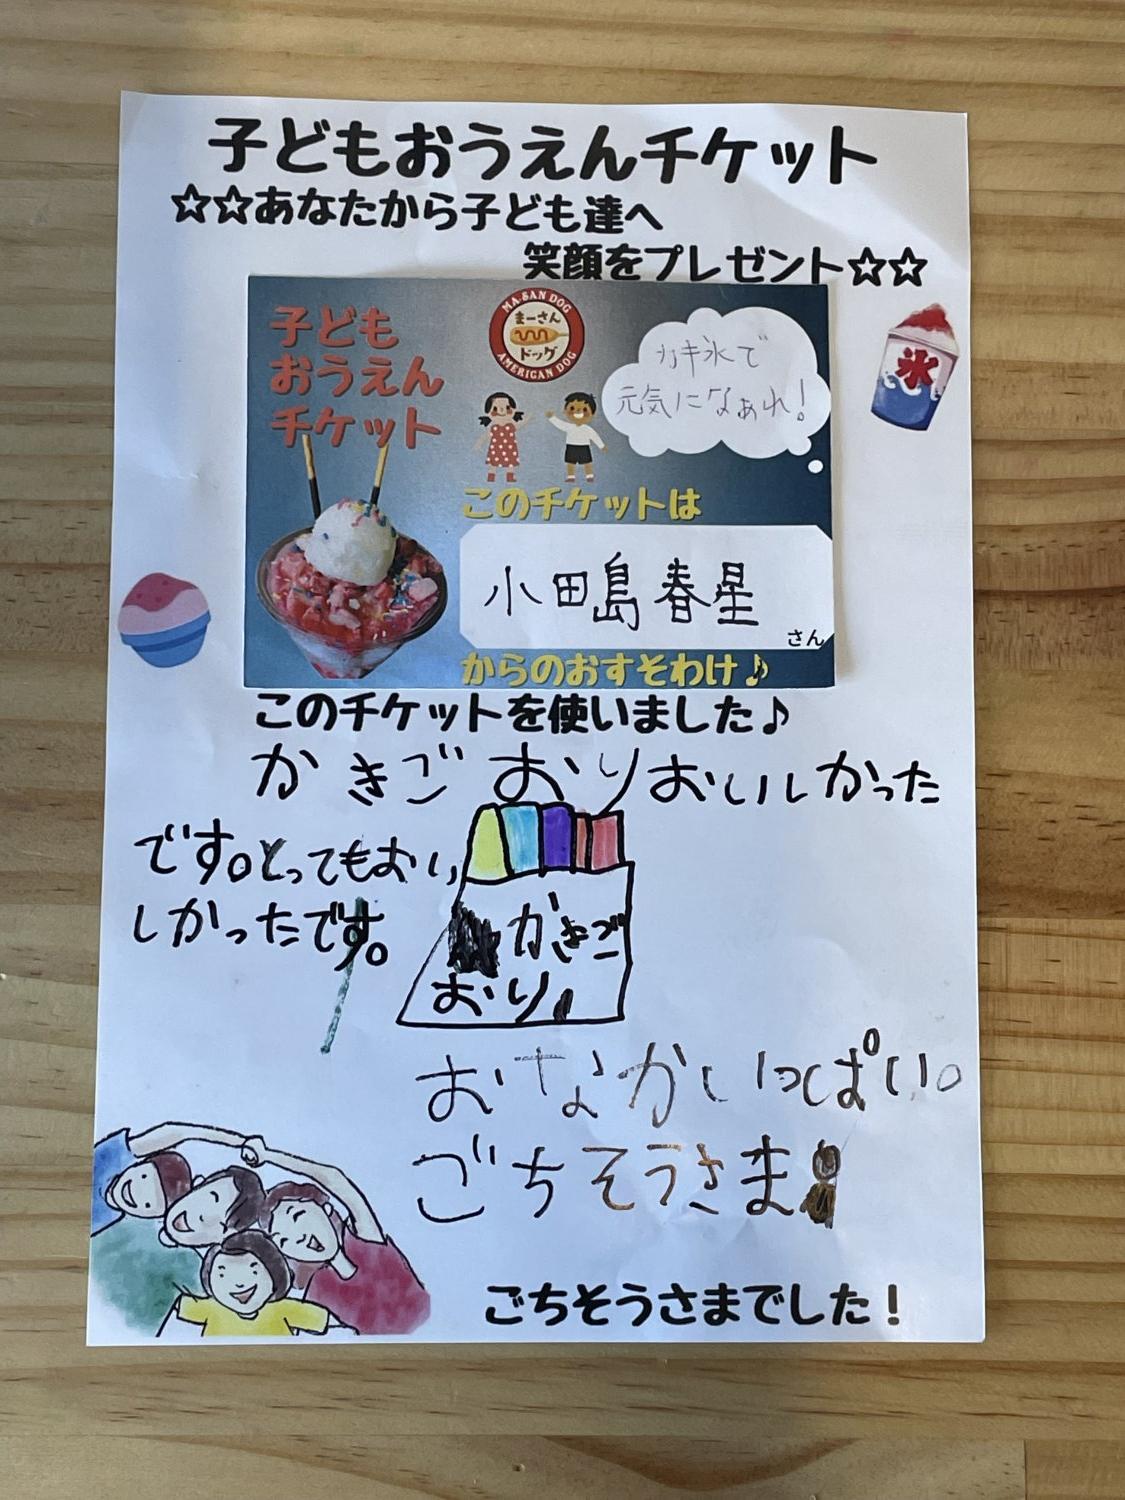 子どもおうえんチケット
☆☆あなたから子ども達へ
笑顔をプレゼント☆☆
子ども
おうえん
チケット
MA-SAN DOG
まーさん
ドッグ
AMERICAN DOG
カキ氷で
元気になぁれ!
氷
このチケットは
小田島春星
さん
からのおすそわけ♪
このチケットを使いました♪
かきごおりおいしかった
です。とってもおい
しかったです。
かきご
おり
おなかいっぱい。
ごちそうさま
ごちそうさまでした!